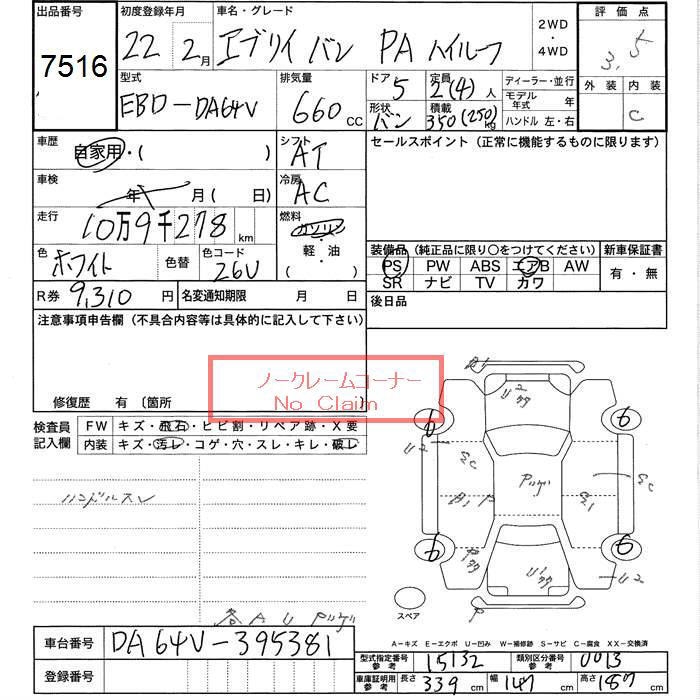 出品番号 初度登録年月 車名・グレード 2WD・4WD 評価点
7516 22年 2月 エブリイ バン PA ハイルーフ 3.5
型式 排気量 ドア 定員 ディーラー・並行 外装 内装
EBD-DA64V 660cc 5 2(4)人 モデル年式 年 C
形状 積載 ハンドル 左・右
バン 350(250)kg
車歴 自家用・( ) シフト AT セールスポイント (正常に機能するものに限ります)
車検 年 月( 日) 冷房 AC
走行 10万9千278km 燃料 ガソリン
軽・油
( )
色 ホワイト 色替 色コード 26U
装備品 (純正品に限り○をつけてください) 新車保証書
PS PW ABS エアB AW 有・無
SR ナビ TV カワ
R券 9,310円 名変通知期限 月 日 後日品
注意事項申告欄 (不具合内容等は具体的に記入して下さい)
ノークレームコーナー
No Claim
修復歴 有 〔箇所 〕
検査員記入欄 FW キズ・飛石・ヒビ割・リペア跡・X要
内装 キズ・汚レ・コゲ・穴・スレ・キレ・破レ
ハンドルスレ
スペア
A-キズ E-エクボ U-凹み W-補修跡 S-サビ C-腐食 XX-交換済
車台番号 DA64V-395381
型式指定番号参考 15132 類別区分番号参考 0013
登録番号
車庫証明用参考 長さ 339cm 幅 147cm 高さ 187cm